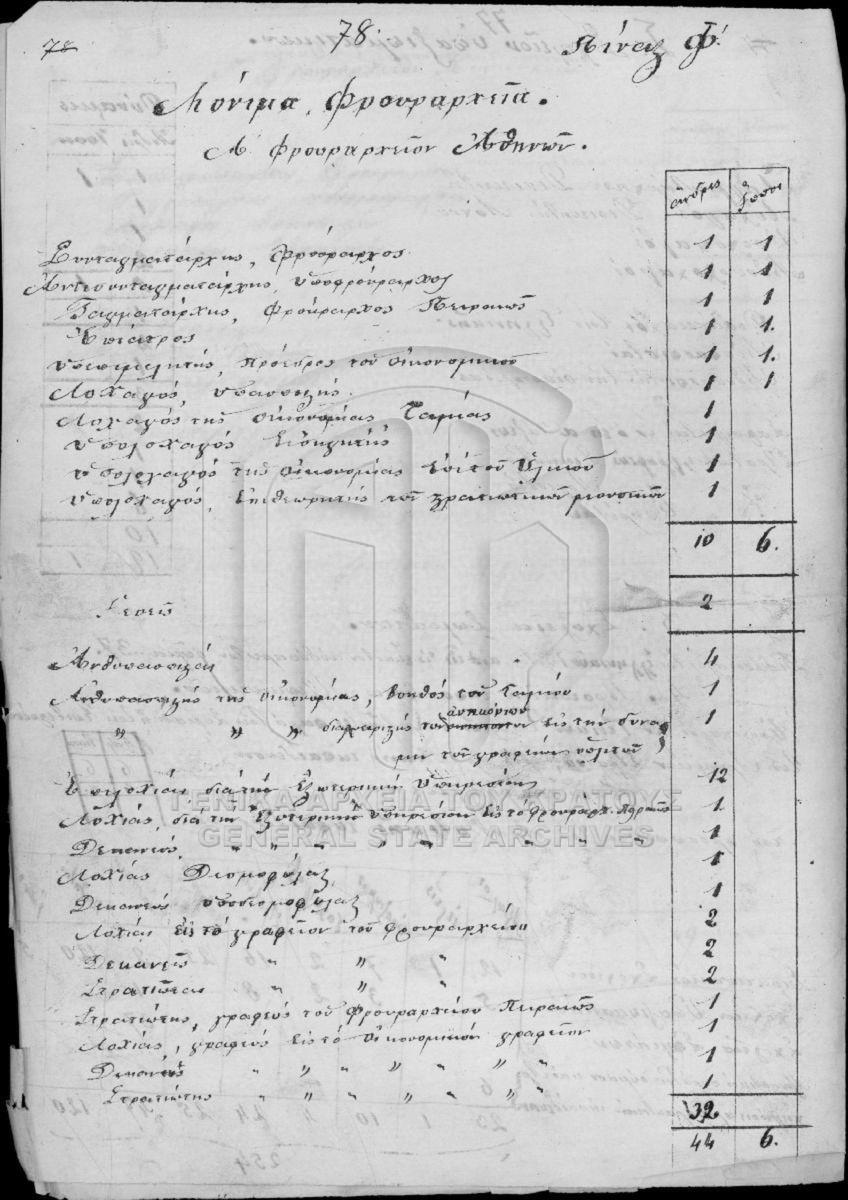 78 78. Πίναξ Φ'.
Μόνιμα Φρουραρχεῖα.
Α Φρουραρχεῖον Ἀθηνῶν.
ἄνδρες ἵπποι
Συνταγματάρχης, φρούραρχος 1 1
Ἀντισυνταγματάρχης, ὑποφρούραρχος 1 1
Ταγματάρχης, φρούραρχος Πειραιῶς 1 1
Ἐπίατρος 1 1.
Ὑπεπιμελητής, πρόεδρος τοῦ οἰκονομικοῦ 1 1.
Λοχαγός, ὑπασπιστής 1 1
Λοχαγός τῆς οἰκονομίας Ταμίας 1
Ὑπολοχαγός Εἰσηγητής 1
Ὑπολοχαγός τῆς οἰκονομίας ἐπί τοῦ ὑλικοῦ 1
Ὑπολοχαγός, Ἐπιθεωρητής τῶν στρατιωτικῶν μουσικῶν 1
10 6.
Ἱερεῖς 2
Ἀνθυπασπισταί 4
Ἀνθυπασπιστής τῆς οἰκονομίας, βοηθός τοῦ Ταμίου 1
" " " διαχειριστής τῶν ἀνηκόντων εἰς τήν δύνα 1
μιν τοῦ γραφείου
Ἐπιλοχίας διά τήν ἐξωτερικήν ὑπηρεσίαν 12
Λοχίας, διά τήν ἐξωτερικήν ὑπηρεσίαν εἰς τό φρουραρχ. Πειραιῶς 1
Δεκανεύς, " " " " " " " 1
Λοχίας Δεσμοφύλαξ 1
Δεκανεύς ὑποδεσμοφύλαξ 1
Λοχίαι εἰς τό γραφεῖον τοῦ φρουραρχείου 2
Δεκανεῖς " " " 2
Στρατιῶται " " " 2
Στρατιώτης, γραφεύς τοῦ φρουραρχείου Πειραιῶς 1
Λοχίας, γραφεύς εἰς τό οἰκονομικόν γραφεῖον 1
Δεκανεύς " " " " " " " 1
Στρατιώτης " " " " " " " 1
32
44 6.
ΓΕΝΙΚΑ ΑΡΧΕΙΑ ΤΟΥ ΚΡΑΤΟΥΣ
GENERAL STATE ARCHIVES